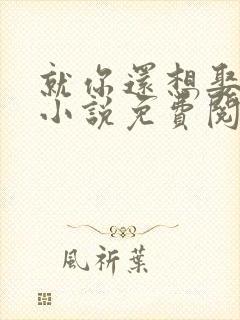 就你還想娶
小說免費閱
風祈葉